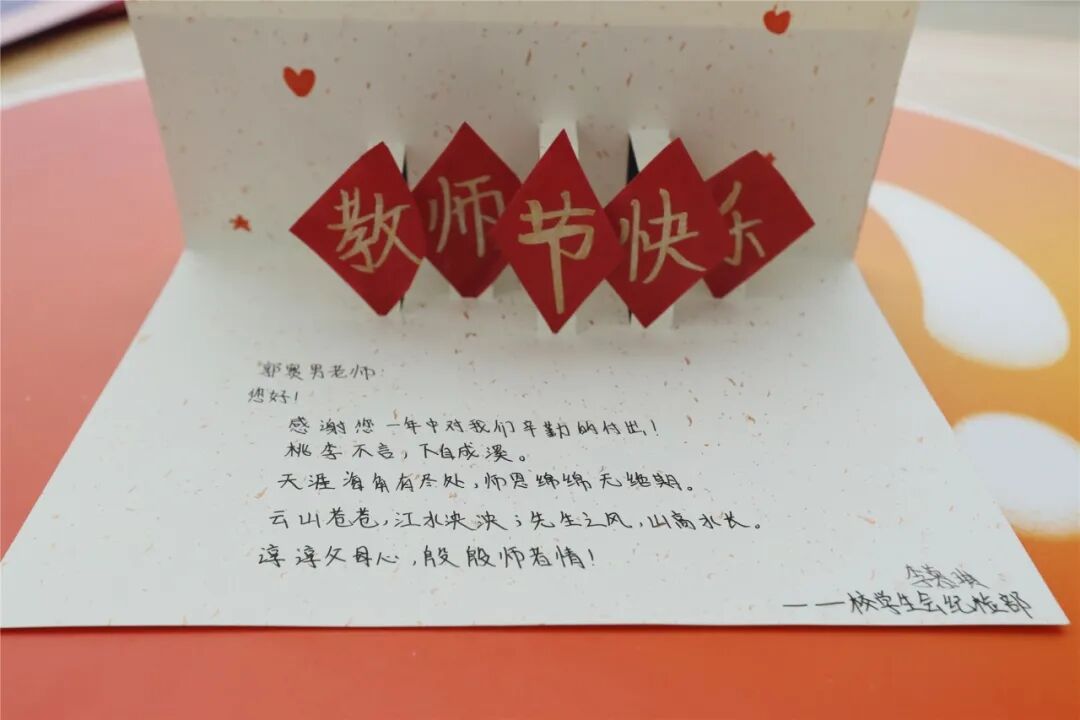 教师节快乐
郭赛男老师:
您好!
感谢您一年中对我们辛勤的付出!
桃李不言,下自成溪。
天涯海角有尽处,师恩绵绵无绝期。
云山苍苍,江水泱泱;先生之风,山高水长。
谆谆父母心,殷殷师者情!
李
——校学生会纪检部